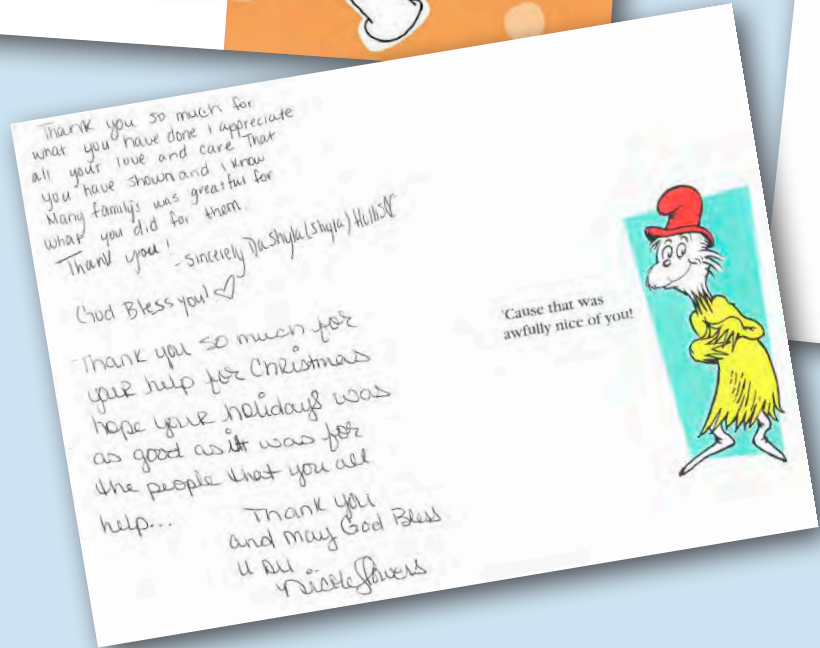 Thank you so much for
what you have done I appreciate
all your love and care That
you have shown and I know
Many family's was greatful for
what you did for them.
Thank you!
- Sincerely Da'Shyla (Shyla)
God Bless you! ♡
Thank you so much for
your help for Christmas
hope your holidays was
as good as it was for
the people that you all
help...
Thank you
and may God Bless
u All
Nicole Flowers
'Cause that was
awfully nice of you!